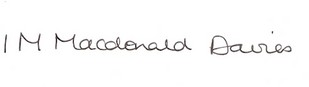 I M Macdonald Davies